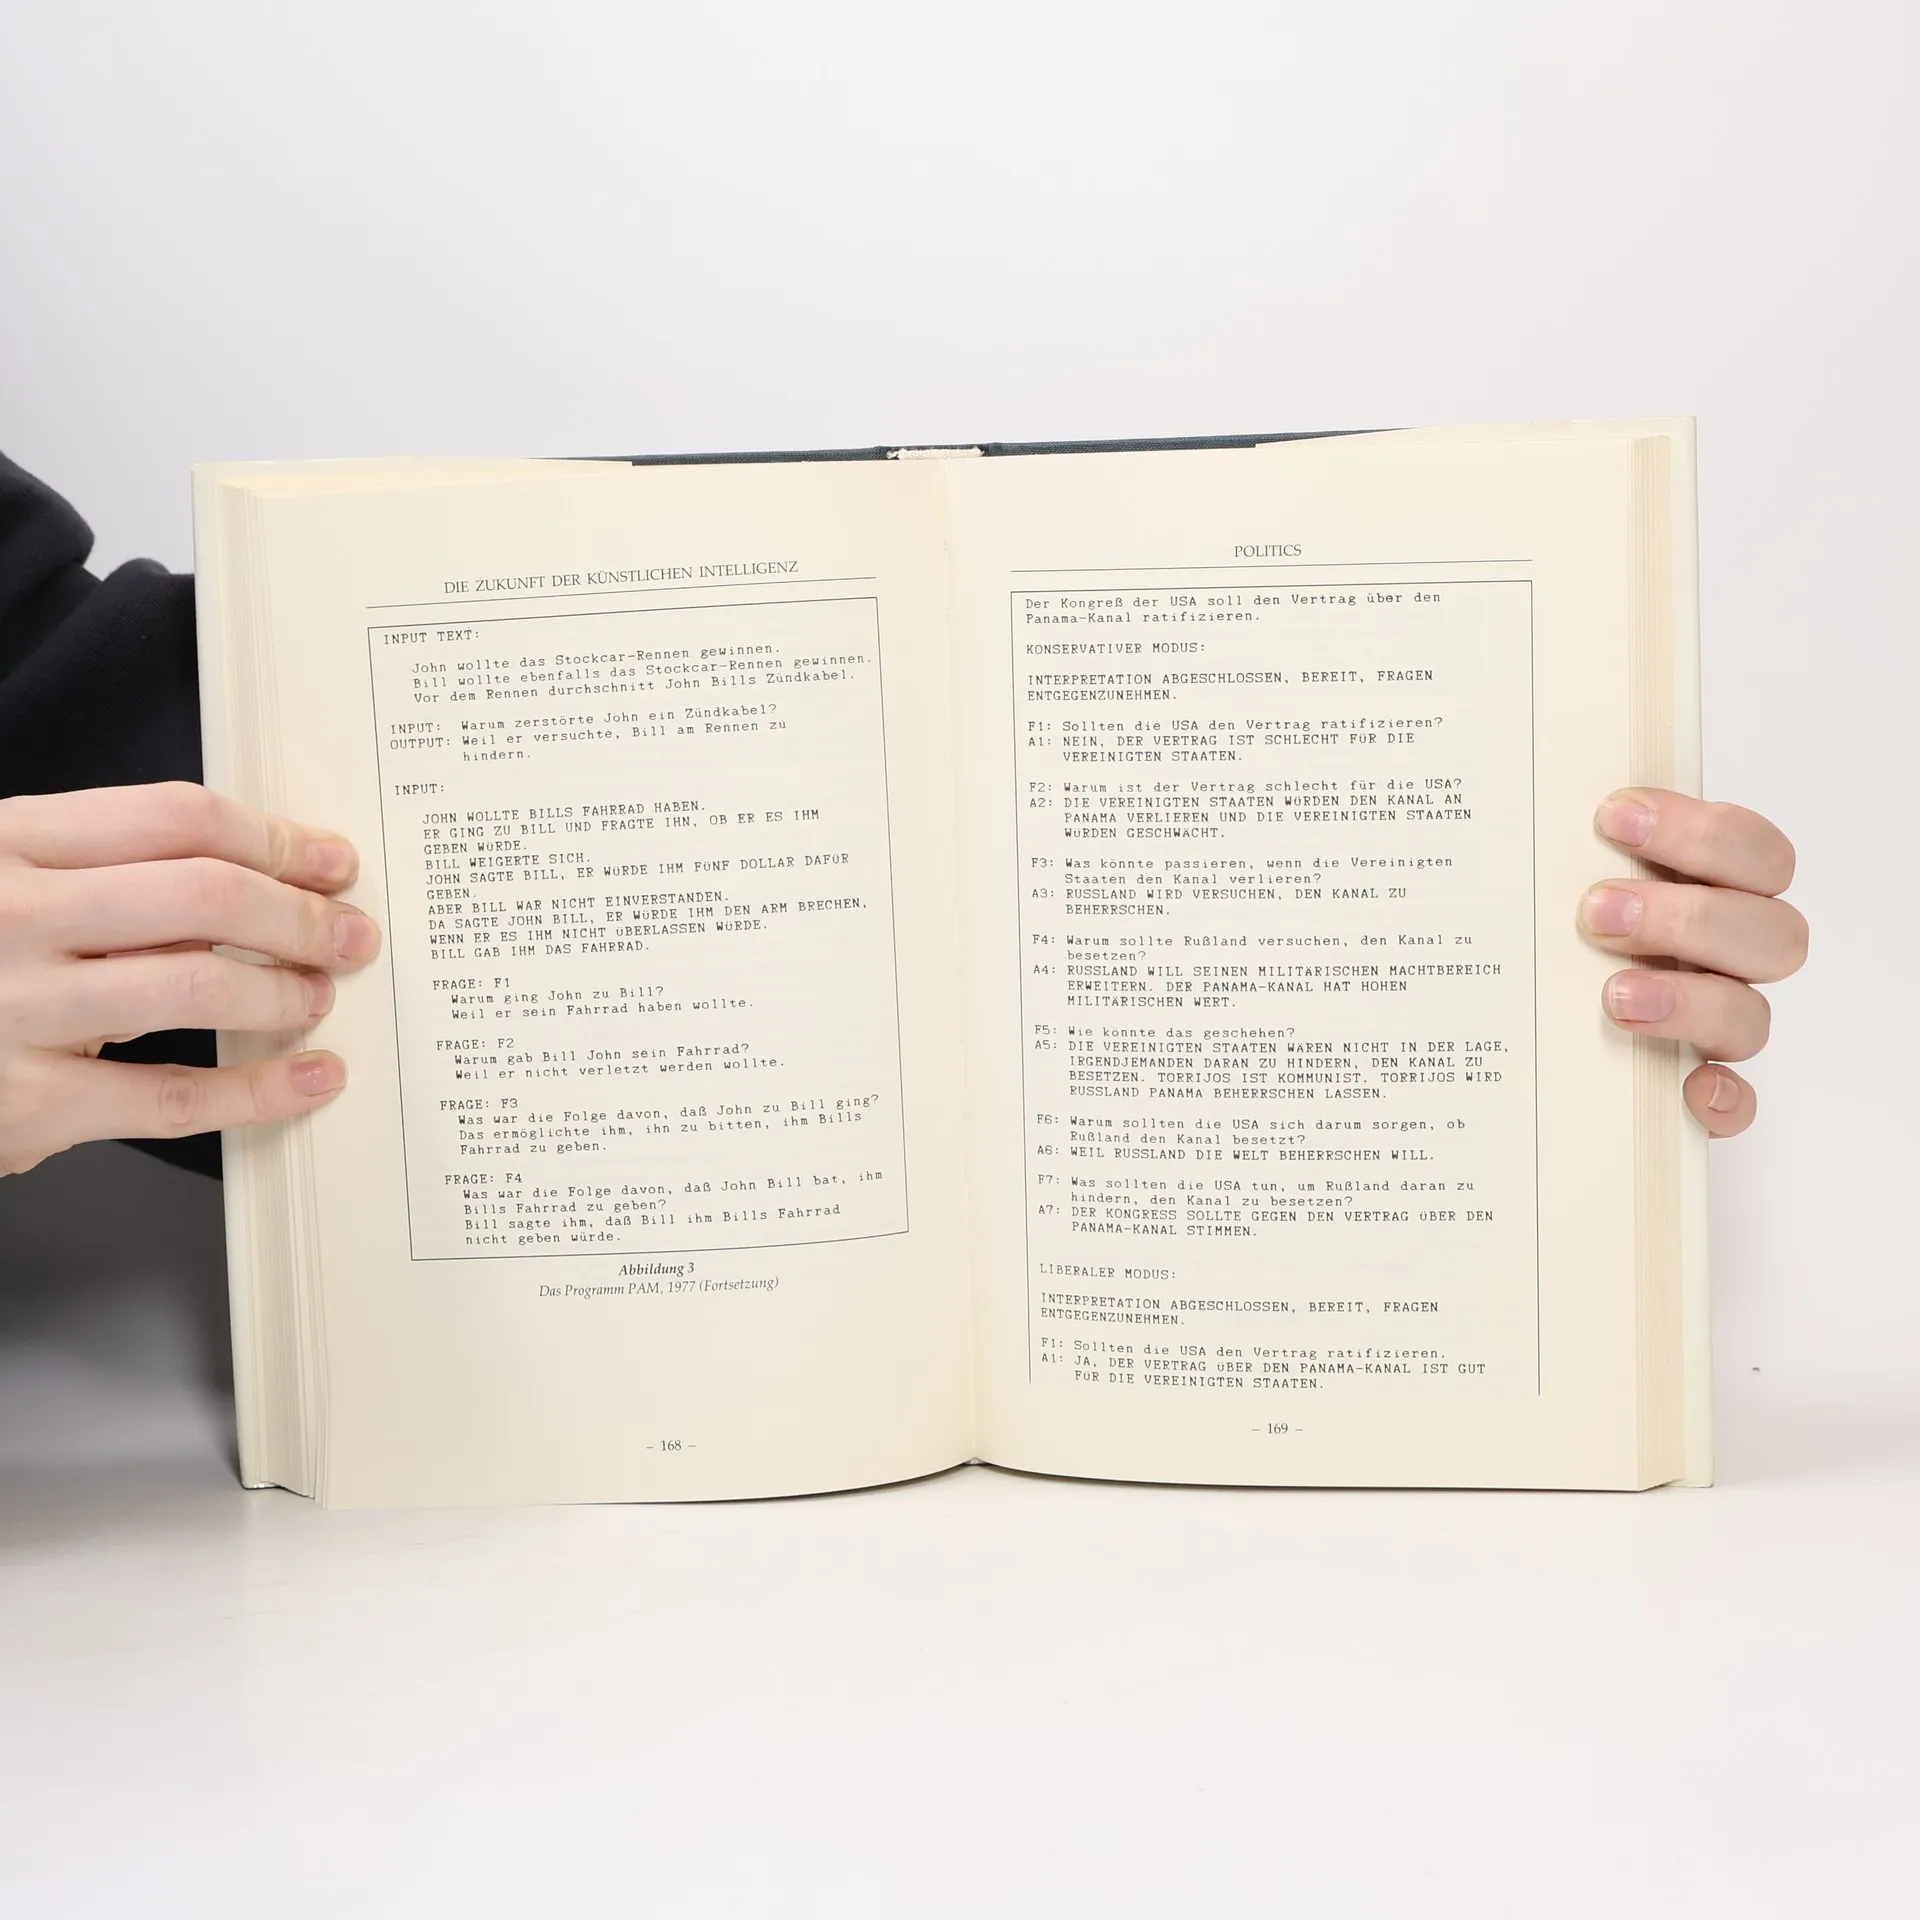 DIE ZUKUNFT DER KÜNSTLICHEN INTELLIGENZ
INPUT TEXT:
John wollte das Stockcar-Rennen gewinnen.
Bill wollte ebenfalls das Stockcar-Rennen gewinnen.
Vor dem Rennen durchschnitt John Bills Zündkabel.
INPUT: Warum zerstörte John ein Zündkabel?
OUTPUT: Weil er versuchte, Bill am Rennen zu
hindern.
INPUT:
JOHN WOLLTE BILLS FAHRRAD HABEN.
ER GING ZU BILL UND FRAGTE IHN, OB ER ES IHM
GEBEN WÜRDE.
BILL WEIGERTE SICH.
JOHN SAGTE BILL, ER WÜRDE IHM FÜNF DOLLAR DAFÜR
GEBEN.
ABER BILL WAR NICHT EINVERSTANDEN.
DA SAGTE JOHN BILL, ER WÜRDE IHM DEN ARM BRECHEN,
WENN ER ES IHM NICHT ÜBERLASSEN WÜRDE.
BILL GAB IHM DAS FAHRRAD.
FRAGE: F1
Warum ging John zu Bill?
Weil er sein Fahrrad haben wollte.
FRAGE: F2
Warum gab Bill John sein Fahrrad?
Weil er nicht verletzt werden wollte.
FRAGE: F3
Was war die Folge davon, daß John zu Bill ging?
Das ermöglichte ihm, ihn zu bitten, ihm Bills
Fahrrad zu geben.
FRAGE: F4
Was war die Folge davon, daß John Bill bat, ihm
Bills Fahrrad zu geben?
Bill sagte ihm, daß Bill ihm Bills Fahrrad
nicht geben würde.
Abbildung 3
Das Programm PAM, 1977 (Fortsetzung)
– 168 –
POLITICS
Der Kongreß der USA soll den Vertrag über den
Panama-Kanal ratifizieren.
KONSERVATIVER MODUS:
INTERPRETATION ABGESCHLOSSEN, BEREIT, FRAGEN
ENTGEGENZUNEHMEN.
F1: Sollten die USA den Vertrag ratifizieren?
A1: NEIN, DER VERTRAG IST SCHLECHT FÜR DIE
VEREINIGTEN STAATEN.
F2: Warum ist der Vertrag schlecht für die USA?
A2: DIE VEREINIGTEN STAATEN WÜRDEN DEN KANAL AN
PANAMA VERLIEREN UND DIE VEREINIGTEN STAATEN
WÜRDEN GESCHWÄCHT.
F3: Was könnte passieren, wenn die Vereinigten
Staaten den Kanal verlieren?
A3: RUSSLAND WIRD VERSUCHEN, DEN KANAL ZU
BEHERRSCHEN.
F4: Warum sollte Rußland versuchen, den Kanal zu
besetzen?
A4: RUSSLAND WILL SEINEN MILITÄRISCHEN MACHTBEREICH
ERWEITERN. DER PANAMA-KANAL HAT HOHEN
MILITÄRISCHEN WERT.
F5: Wie könnte das geschehen?
A5: DIE VEREINIGTEN STAATEN WÄREN NICHT IN DER LAGE,
IRGENDJEMANDEN DARAN ZU HINDERN, DEN KANAL ZU
BESETZEN. TORRIJOS IST KOMMUNIST. TORRIJOS WIRD
RUSSLAND PANAMA BEHERRSCHEN LASSEN.
F6: Warum sollten die USA sich darum sorgen, ob
Rußland den Kanal besetzt?
A6: WEIL RUSSLAND DIE WELT BEHERRSCHEN WILL.
F7: Was sollten die USA tun, um Rußland daran zu
hindern, den Kanal zu besetzen?
A7: DER KONGRESS SOLLTE GEGEN DEN VERTRAG ÜBER DEN
PANAMA-KANAL STIMMEN.
LIBERALER MODUS:
INTERPRETATION ABGESCHLOSSEN, BEREIT, FRAGEN
ENTGEGENZUNEHMEN.
F1: Sollten die USA den Vertrag ratifizieren.
A1: JA, DER VERTRAG ÜBER DEN PANAMA-KANAL IST GUT
FÜR DIE VEREINIGTEN STAATEN.
– 169 –